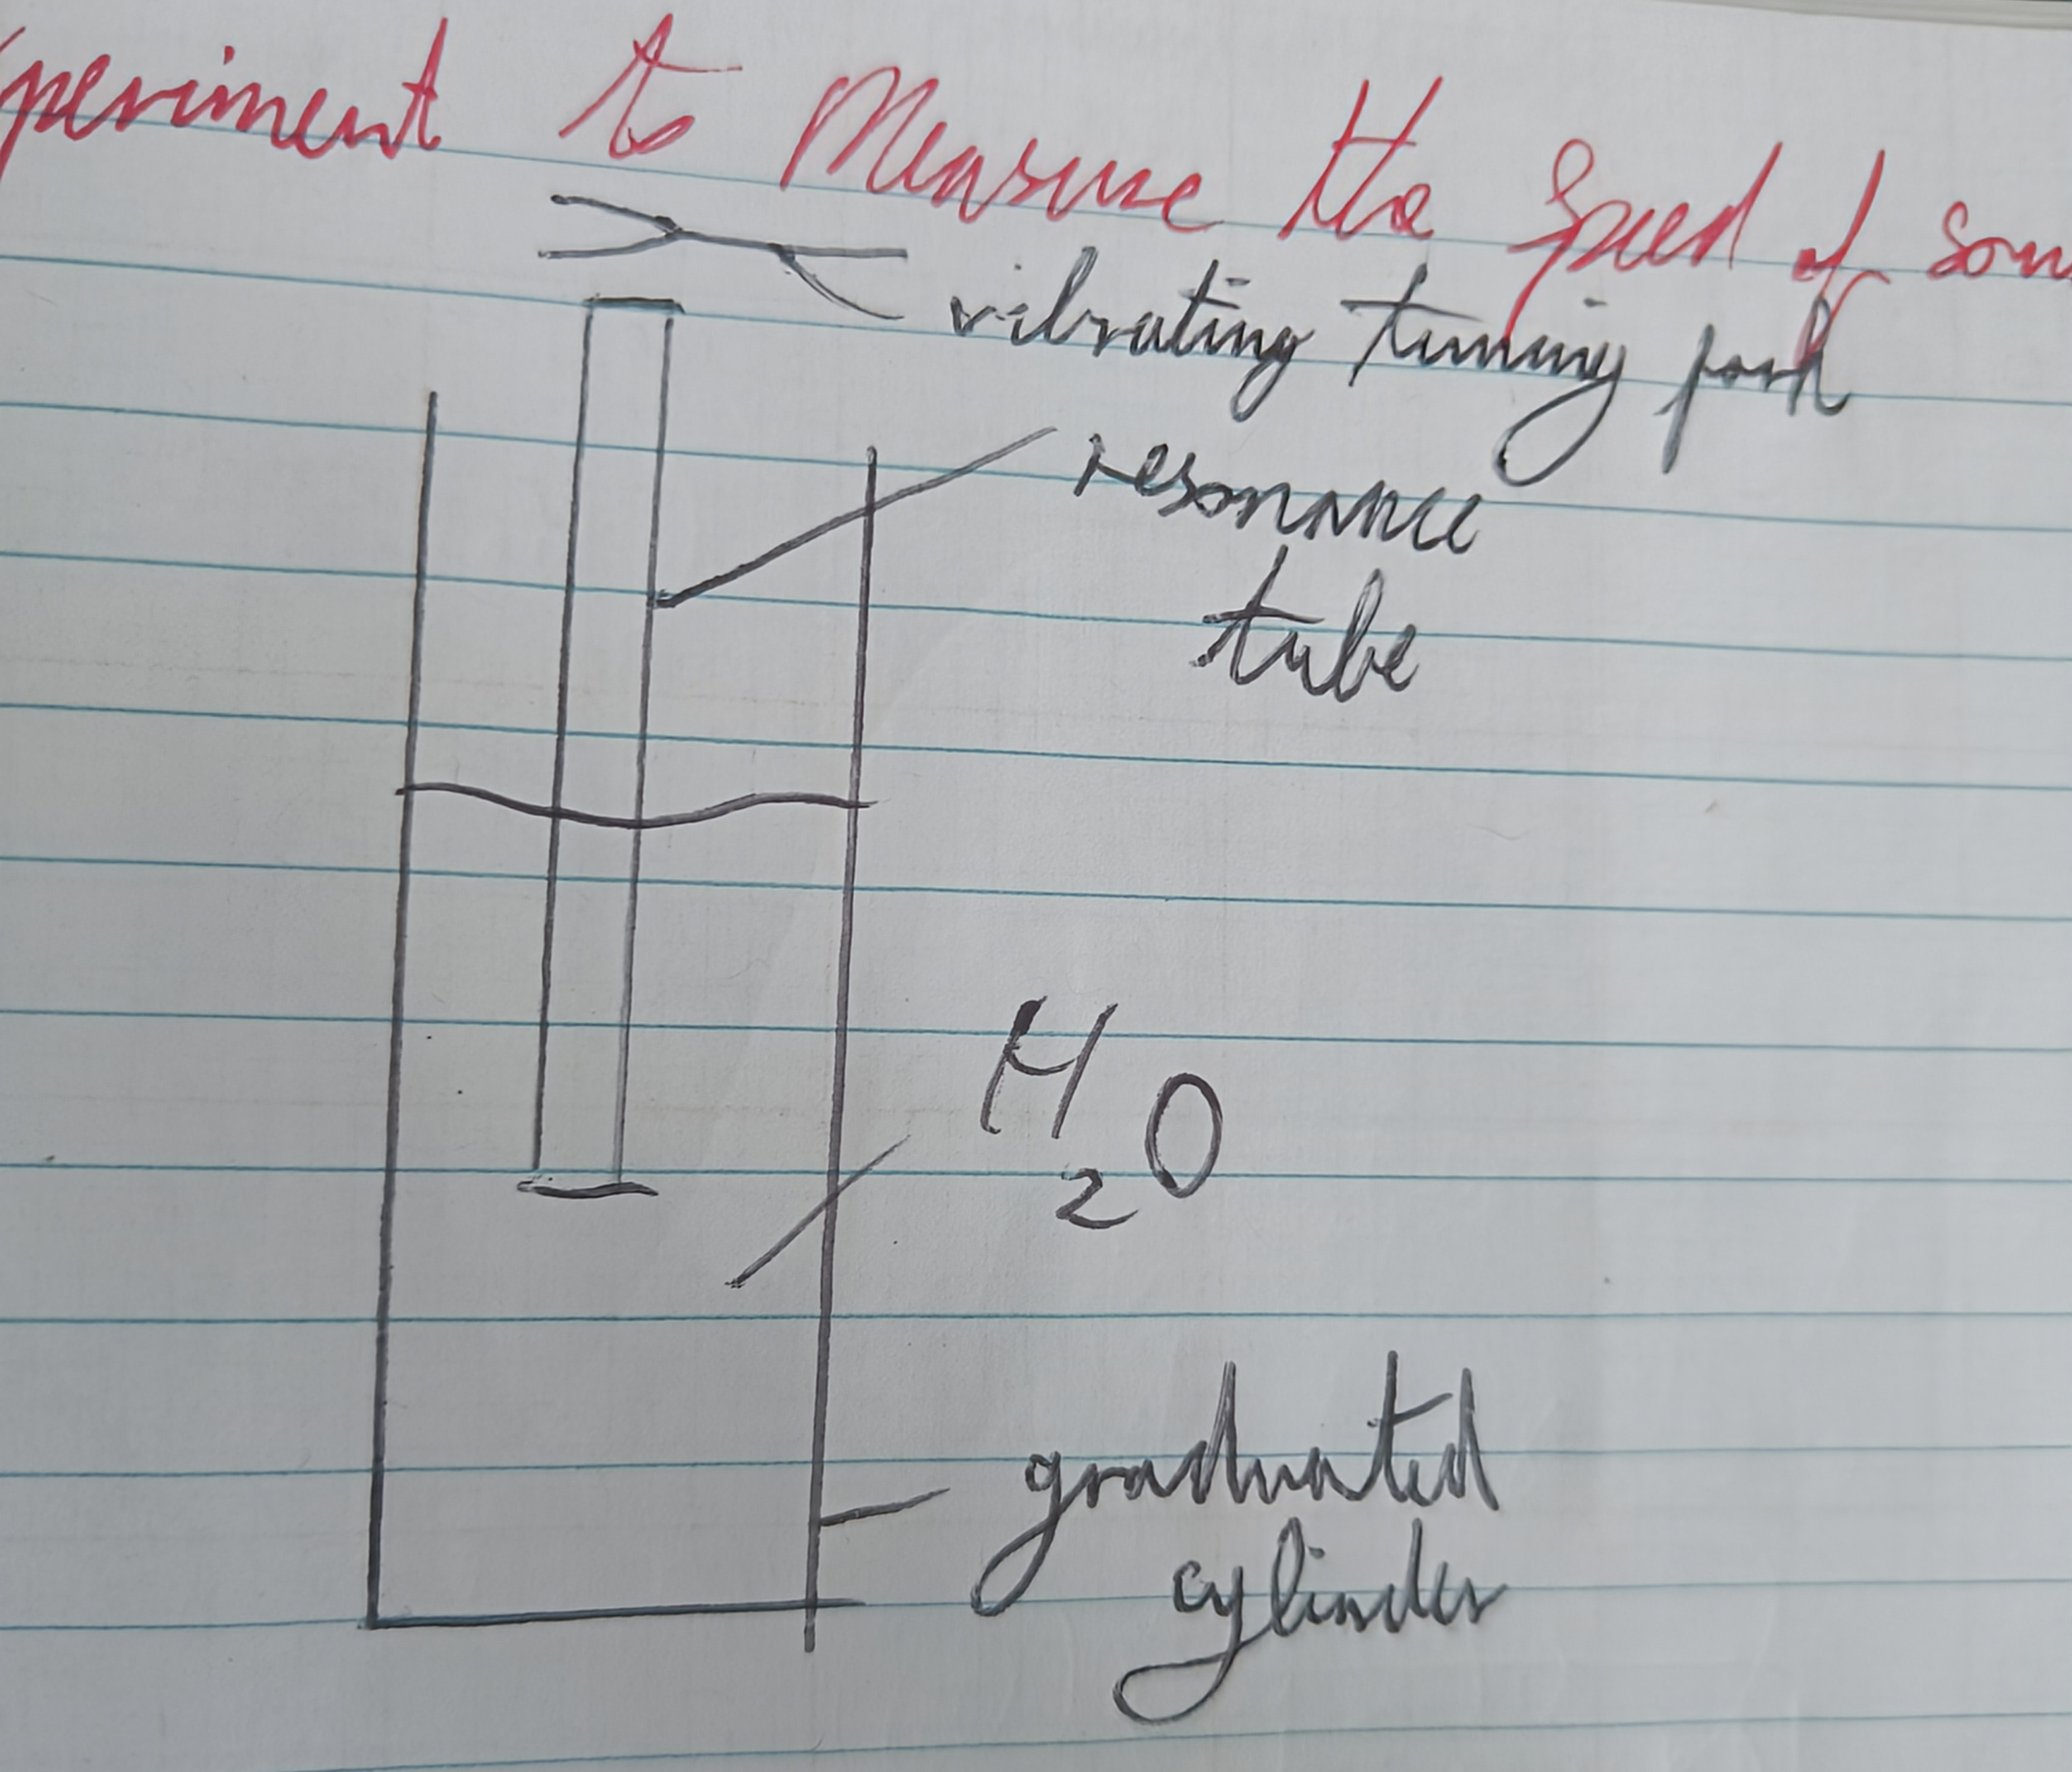 xperiment to Measure the Speed of soun
vibrating tuning fork
resonance
tube
H2O
graduated
cylinder